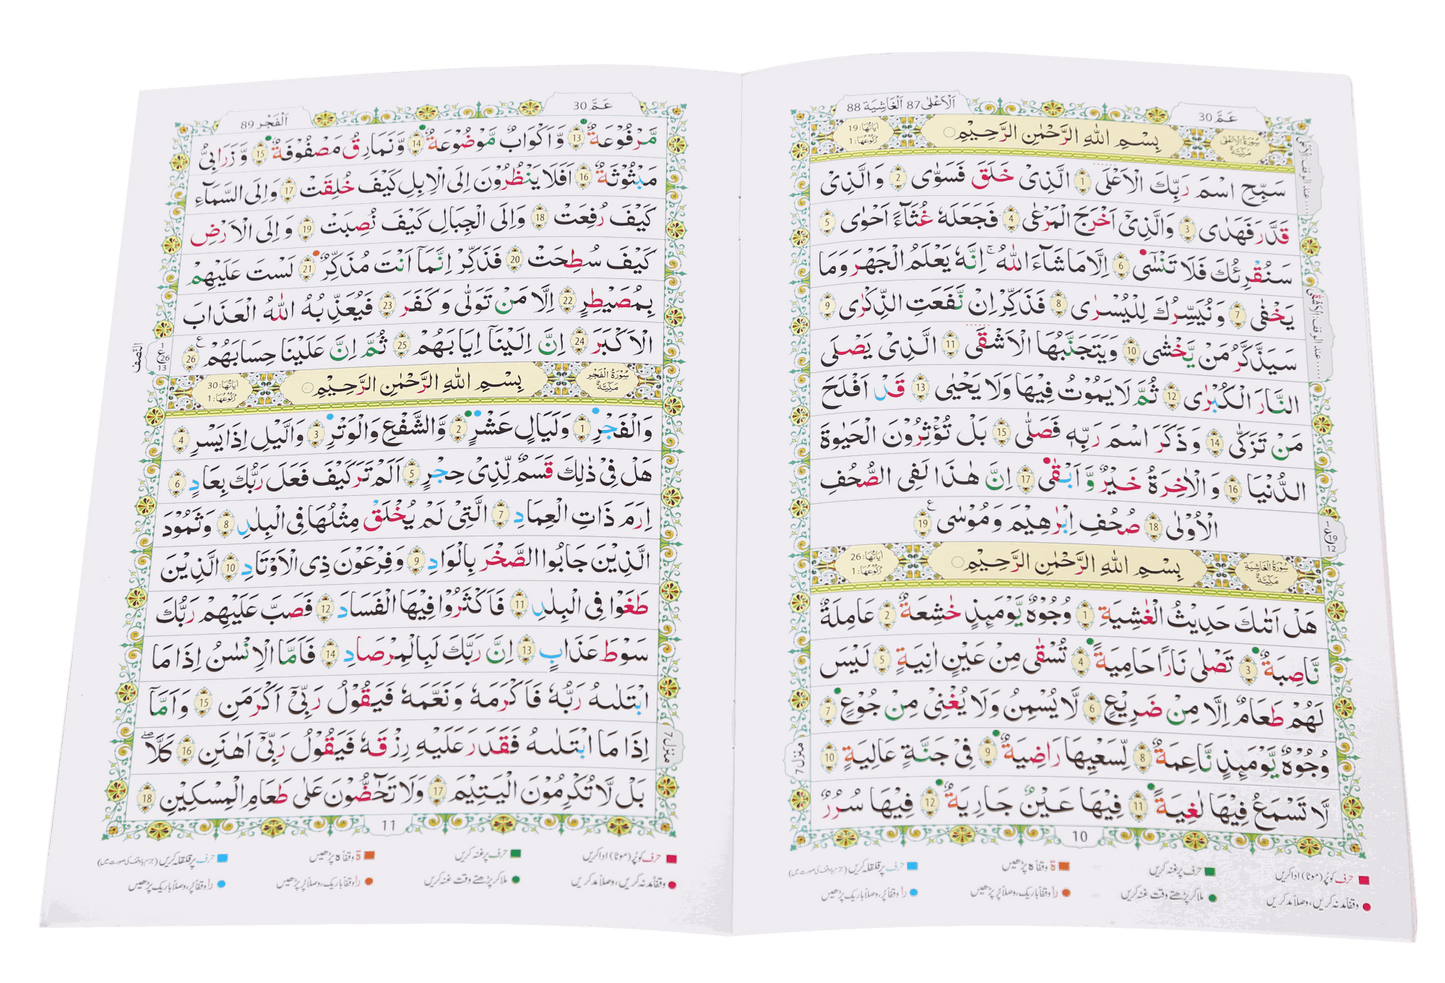 عَمَّ 30
اَلْاَعْلٰى 87 اَلْغَاشِيَة 88
سُوْرَةُ الْاَعْلٰى مَكِّيَّةٌ
بِسْمِ اللهِ الرَّحْمٰنِ الرَّحِيْمِ
اٰيَاتُهَا: 19 رُكُوْعُهَا: 1
سَبِّحِ اسْمَ رَبِّكَ الْاَعْلَى 1 الَّذِىْ خَلَقَ فَسَوّٰى 2 وَالَّذِىْ
قَدَّرَ فَهَدٰى 3 وَالَّذِىْٓ اَخْرَجَ الْمَرْعٰى 4 فَجَعَلَهٗ غُثَآءً اَحْوٰى 5
سَنُقْرِئُكَ فَلَا تَنْسٰٓى 6 اِلَّا مَا شَآءَ اللّٰهُ ؕ اِنَّهٗ يَعْلَمُ الْجَهْرَ وَمَا
يَخْفٰى 7 وَنُيَسِّرُكَ لِلْيُسْرٰى 8 فَذَكِّرْ اِنْ نَّفَعَتِ الذِّكْرٰى 9
سَيَذَّكَّرُ مَنْ يَّخْشٰى 10 وَيَتَجَنَّبُهَا الْاَشْقَى 11 الَّذِىْ يَصْلَى
النَّارَ الْكُبْرٰى 12 ثُمَّ لَا يَمُوْتُ فِيْهَا وَلَا يَحْيٰى 13 قَدْ اَفْلَحَ
مَنْ تَزَكّٰى 14 وَذَكَرَ اسْمَ رَبِّهٖ فَصَلّٰى 15 بَلْ تُؤْثِرُوْنَ الْحَيٰوةَ
الدُّنْيَا 16 وَالْاٰخِرَةُ خَيْرٌ وَّاَبْقٰى 17 اِنَّ هٰذَا لَفِى الصُّحُفِ
الْاُوْلٰى 18 صُحُفِ اِبْرٰهِيْمَ وَمُوْسٰى 19
سُوْرَةُ الْغَاشِيَةِ مَكِّيَّةٌ
بِسْمِ اللهِ الرَّحْمٰنِ الرَّحِيْمِ
اٰيَاتُهَا: 26 رُكُوْعُهَا: 1
هَلْ اَتٰىكَ حَدِيْثُ الْغَاشِيَةِ 1 وُجُوْهٌ يَّوْمَئِذٍ خَاشِعَةٌ 2 عَامِلَةٌ
نَّاصِبَةٌ 3 تَصْلٰى نَارًا حَامِيَةً 4 تُسْقٰى مِنْ عَيْنٍ اٰنِيَةٍ 5 لَيْسَ
لَهُمْ طَعَامٌ اِلَّا مِنْ ضَرِيْعٍ 6 لَّا يُسْمِنُ وَلَا يُغْنِىْ مِنْ جُوْعٍ 7
وُجُوْهٌ يَّوْمَئِذٍ نَّاعِمَةٌ 8 لِّسَعْيِهَا رَاضِيَةٌ 9 فِىْ جَنَّةٍ عَالِيَةٍ 10
لَّا تَسْمَعُ فِيْهَا لَاغِيَةً 11 فِيْهَا عَيْنٌ جَارِيَةٌ 12 فِيْهَا سُرُرٌ
منزل ٧
10
حرف کو پُر (موٹا) ادا کریں
حرف پر غنہ کریں
ۃ وقفاً ہ پڑھیں
حرف پر قلقلہ کریں
وقفاً مد نہ کریں، وصلاً مد کریں
ملا کر پڑھتے وقت غنہ کریں
را وقفاً باریک، وصلاً پُر پڑھیں
را وقفاً پُر، وصلاً باریک پڑھیں
عَمَّ 30
اَلْفَجْر 89
مَّرْفُوْعَةٌ 13 وَّاَكْوَابٌ مَّوْضُوْعَةٌ 14 وَّنَمَارِقُ مَصْفُوْفَةٌ 15 وَّزَرَابِىُّ
مَبْثُوْثَةٌ 16 اَفَلَا يَنْظُرُوْنَ اِلَى الْاِبِلِ كَيْفَ خُلِقَتْ 17 وَاِلَى السَّمَآءِ
كَيْفَ رُفِعَتْ 18 وَاِلَى الْجِبَالِ كَيْفَ نُصِبَتْ 19 وَاِلَى الْاَرْضِ
كَيْفَ سُطِحَتْ 20 فَذَكِّرْ اِنَّمَآ اَنْتَ مُذَكِّرٌ 21 لَسْتَ عَلَيْهِمْ
بِمُصَيْطِرٍ 22 اِلَّا مَنْ تَوَلّٰى وَكَفَرَ 23 فَيُعَذِّبُهُ اللّٰهُ الْعَذَابَ
الْاَكْبَرَ 24 اِنَّ اِلَيْنَآ اِيَابَهُمْ 25 ثُمَّ اِنَّ عَلَيْنَا حِسَابَهُمْ 26
سُوْرَةُ الْفَجْرِ مَكِّيَّةٌ
بِسْمِ اللهِ الرَّحْمٰنِ الرَّحِيْمِ
اٰيَاتُهَا: 30 رُكُوْعُهَا: 1
وَالْفَجْرِ 1 وَلَيَالٍ عَشْرٍ 2 وَّالشَّفْعِ وَالْوَتْرِ 3 وَالَّيْلِ اِذَا يَسْرِ 4
هَلْ فِىْ ذٰلِكَ قَسَمٌ لِّذِىْ حِجْرٍ 5 اَلَمْ تَرَ كَيْفَ فَعَلَ رَبُّكَ بِعَادٍ 6
اِرَمَ ذَاتِ الْعِمَادِ 7 الَّتِىْ لَمْ يُخْلَقْ مِثْلُهَا فِى الْبِلَادِ 8 وَثَمُوْدَ
الَّذِيْنَ جَابُوا الصَّخْرَ بِالْوَادِ 9 وَفِرْعَوْنَ ذِى الْاَوْتَادِ 10 الَّذِيْنَ
طَغَوْا فِى الْبِلَادِ 11 فَاَكْثَرُوْا فِيْهَا الْفَسَادَ 12 فَصَبَّ عَلَيْهِمْ رَبُّكَ
سَوْطَ عَذَابٍ 13 اِنَّ رَبَّكَ لَبِالْمِرْصَادِ 14 فَاَمَّا الْاِنْسَانُ اِذَا مَا
ابْتَلٰىهُ رَبُّهٗ فَاَكْرَمَهٗ وَنَعَّمَهٗ فَيَقُوْلُ رَبِّىْٓ اَكْرَمَنِ 15 وَاَمَّآ
اِذَا مَا ابْتَلٰىهُ فَقَدَرَ عَلَيْهِ رِزْقَهٗ فَيَقُوْلُ رَبِّىْٓ اَهَانَنِ 16 كَلَّا
بَلْ لَّا تُكْرِمُوْنَ الْيَتِيْمَ 17 وَلَا تَحٰٓضُّوْنَ عَلٰى طَعَامِ الْمِسْكِيْنِ 18
منزل ٧
11
حرف کو پُر (موٹا) ادا کریں
حرف پر غنہ کریں
ۃ وقفاً ہ پڑھیں
حرف پر قلقلہ کریں
وقفاً مد نہ کریں، وصلاً مد کریں
ملا کر پڑھتے وقت غنہ کریں
را وقفاً باریک، وصلاً پُر پڑھیں
را وقفاً پُر، وصلاً باریک پڑھیں